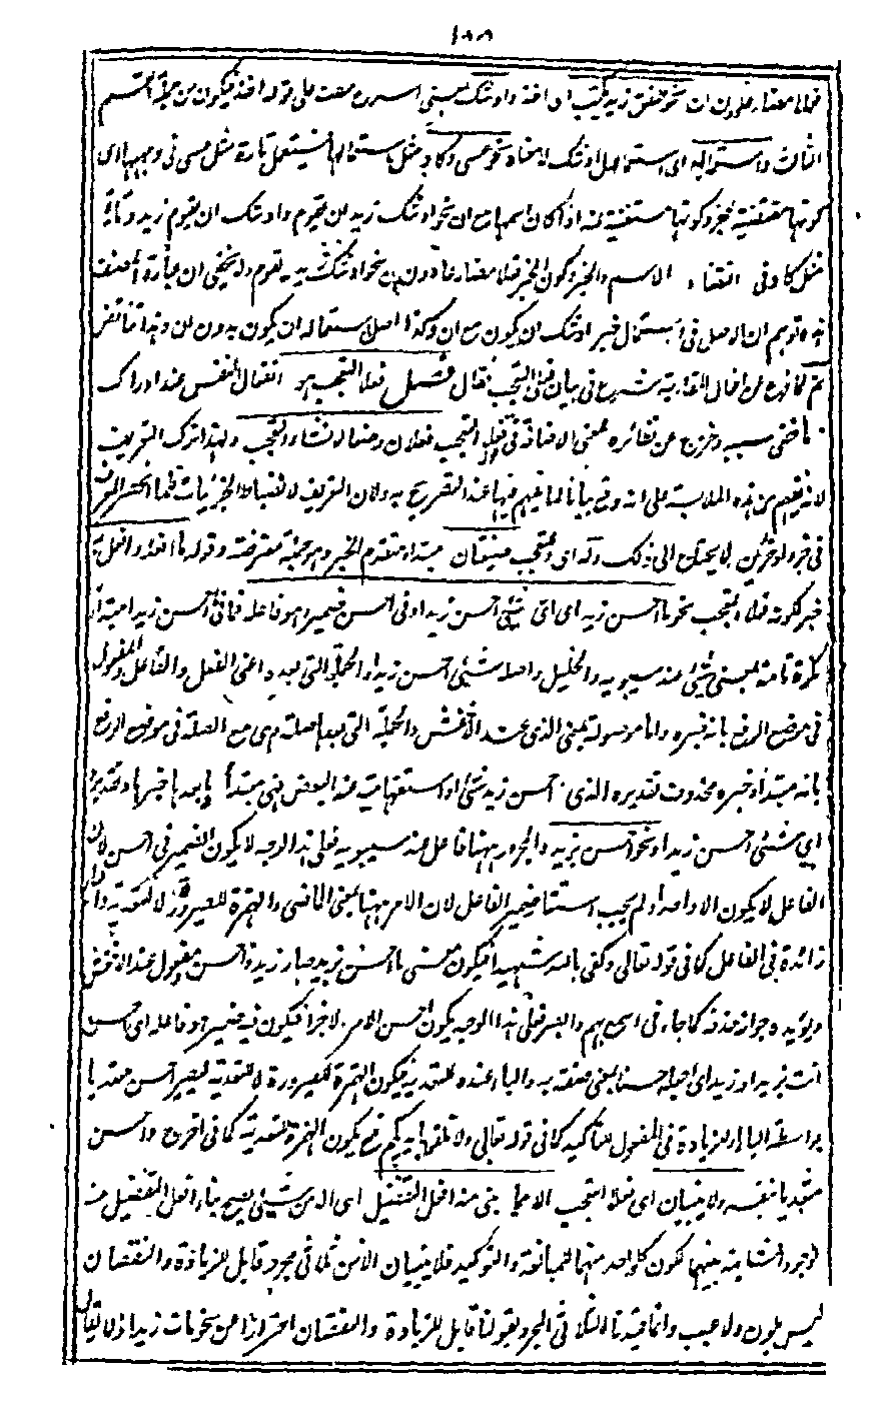 ١٥٥
الثالث واستعماله اى استعمال اوشك لاتحاده نحو عسى وكاد مثل استعمالها فيستعمل تارة مثل عسى فى وجهيها اى
كونها مقتضية لخبر وكونها مستغنية عنه اذا كان اسمها مع ان نحو اوشك زيد ان يقوم واوشك ان يقوم زيد وتارة
مثل كاد فى اقتضاء الاسم والخبر وكون الخبر فعلا مضارعا دون ان نحو اوشك زيد يقوم ولا يخفى ان عبارة المصنف
توهم ان الاصل فى استعمال خبر اوشك ان يكون مع ان وكذا اصل استعماله ان يكون بدون ان وهذا تناقض
ثم لما فرغ من افعال المقاربة شرع فى بيان فعلى التعجب فقال فصل فعلا التعجب هو انفعال النفس عند ادراك
ما خفى سببه وخرج عن نظائره فمعنى الاضافة فى فعلا التعجب فعلان وضعا لانشاء التعجب ولهذا ترك التعريف
لانه يفهم من هذه الملابسة على انه وقع بيانا لما يفهم منها عند التصريح به ولان التعريف لانضباط الجزئيات فلما انحصر المعرف
فى فرد او فردين لا يحتاج الى ذلك وله اى للتعجب صيغتان مبتدأ متقدم الخبر وهو جملة معترضة وقوله ما افعله وافعل به
خبر لكونه فعلا التعجب نحو ما احسن زيدا اى اى شئ احسن زيدا وفى احسن ضمير هو فاعله فما فى احسن زيدا مبتدأ
نكرة تامة بمعنى شئ عند سيبويه والخليل واصله شئ احسن زيدا والجملة التى بعده اعنى الفعل والفاعل والمفعول
فى موضع الرفع بانه خبره واما موصولة بمعنى الذى عند الاخفش والجملة التى بعدها صلة وهى مع الصلة فى موقع الرفع
بانه مبتدأ وخبره محذوف تقديره الذى احسن زيدا شئ او استفهامية عند البعض فهى مبتدأ وما بعدها خبرها وتقديره
اى شئ احسن زيدا ونحو احسن بزيد والمجرور ههنا فاعل عند سيبويه فعلى هذا الوجه لا يكون الضمير فى احسن لان
الفاعل لا يكون الا واحدا ولم يجب استتار ضمير الفاعل لان الامر ههنا بمعنى الماضى والهمزة للصيرورة لا للتعدية والباء
زائدة فى الفاعل كما فى قوله تعالى وكفى بالله شهيدا فيكون معنى احسن بزيد صار زيد ذا حسن ومفعول عند الاخفش
ويؤيده جواز حذفه كما جاء فى اسمع بهم وابصر فعلى هذا الوجه يكون احسن الامر لا خبرا فيكون فيه ضمير هو فاعله اى احسن
انت بزيد او زيدا اى اجعله حسنا بمعنى صفه به والباء عنده للتعدية فيكون الهمزة للصيرورة لا للتعدية ليصير احسن متعديا
بواسطة الباء او للزيادة فى المفعول للتأكيد كما فى قوله تعالى ولا تلقوا بايديكم فح يكون الهمزة للتعدية كما فى اخرج واحسن
متعديا بنفسه ولا يبنيان اى فعلا التعجب الا مما يبنى منه افعل التفضيل اى الا من شئ يصح بناء افعل التفضيل منه
لوجود المشابهة بينهما لكون كل واحد منهما للمبالغة والتوكيد فلا يبنيان الا من ثلاثى مجرد قابل للزيادة والنقصان
ليس بلون ولا عيب وانما قيدنا الثلاثى المجرد بقولنا قابل للزيادة والنقصان احترازا عن نحو مات زيد اذ لا يقال